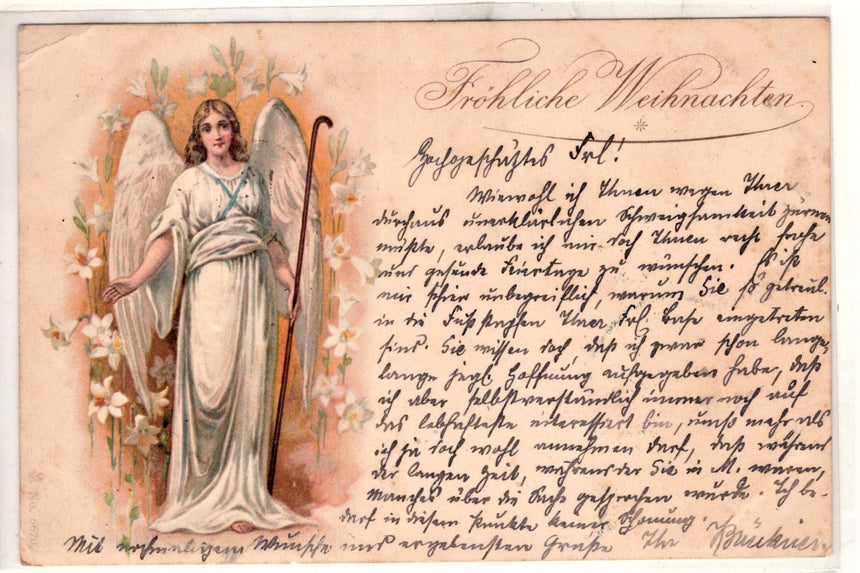 Fröhliche Weihnachten.
Hochgeschätztes Frl!
Wiewohl ich Ihnen wegen Ihrer
durchaus unerklärlichen Schweigsamkeit zürnen
müßte, erlaube ich mir doch Ihnen recht frohe
und gesunde Feiertage zu wünschen. Es ist
mir schier unbegreiflich, warum Sie so getreul.
in die Fußstapfen Ihrer Frl. Base eingetreten
sind. Sie wissen doch, daß ich zwar schon lange,
lange jegl. Hoffnung aufgegeben habe, daß
ich aber selbstverständlich immer noch auf
das lebhafteste interessiert bin, umso mehr als
ich ja doch wohl annehmen darf, daß während
der langen Zeit, während der Sie in M. waren,
Manches über die Sache gesprochen wurde. Ich be-
darf in diesem Punkte keiner Schonung.
Mit nochmaligem Wunsche und ergebensten Gruße Ihr
No.